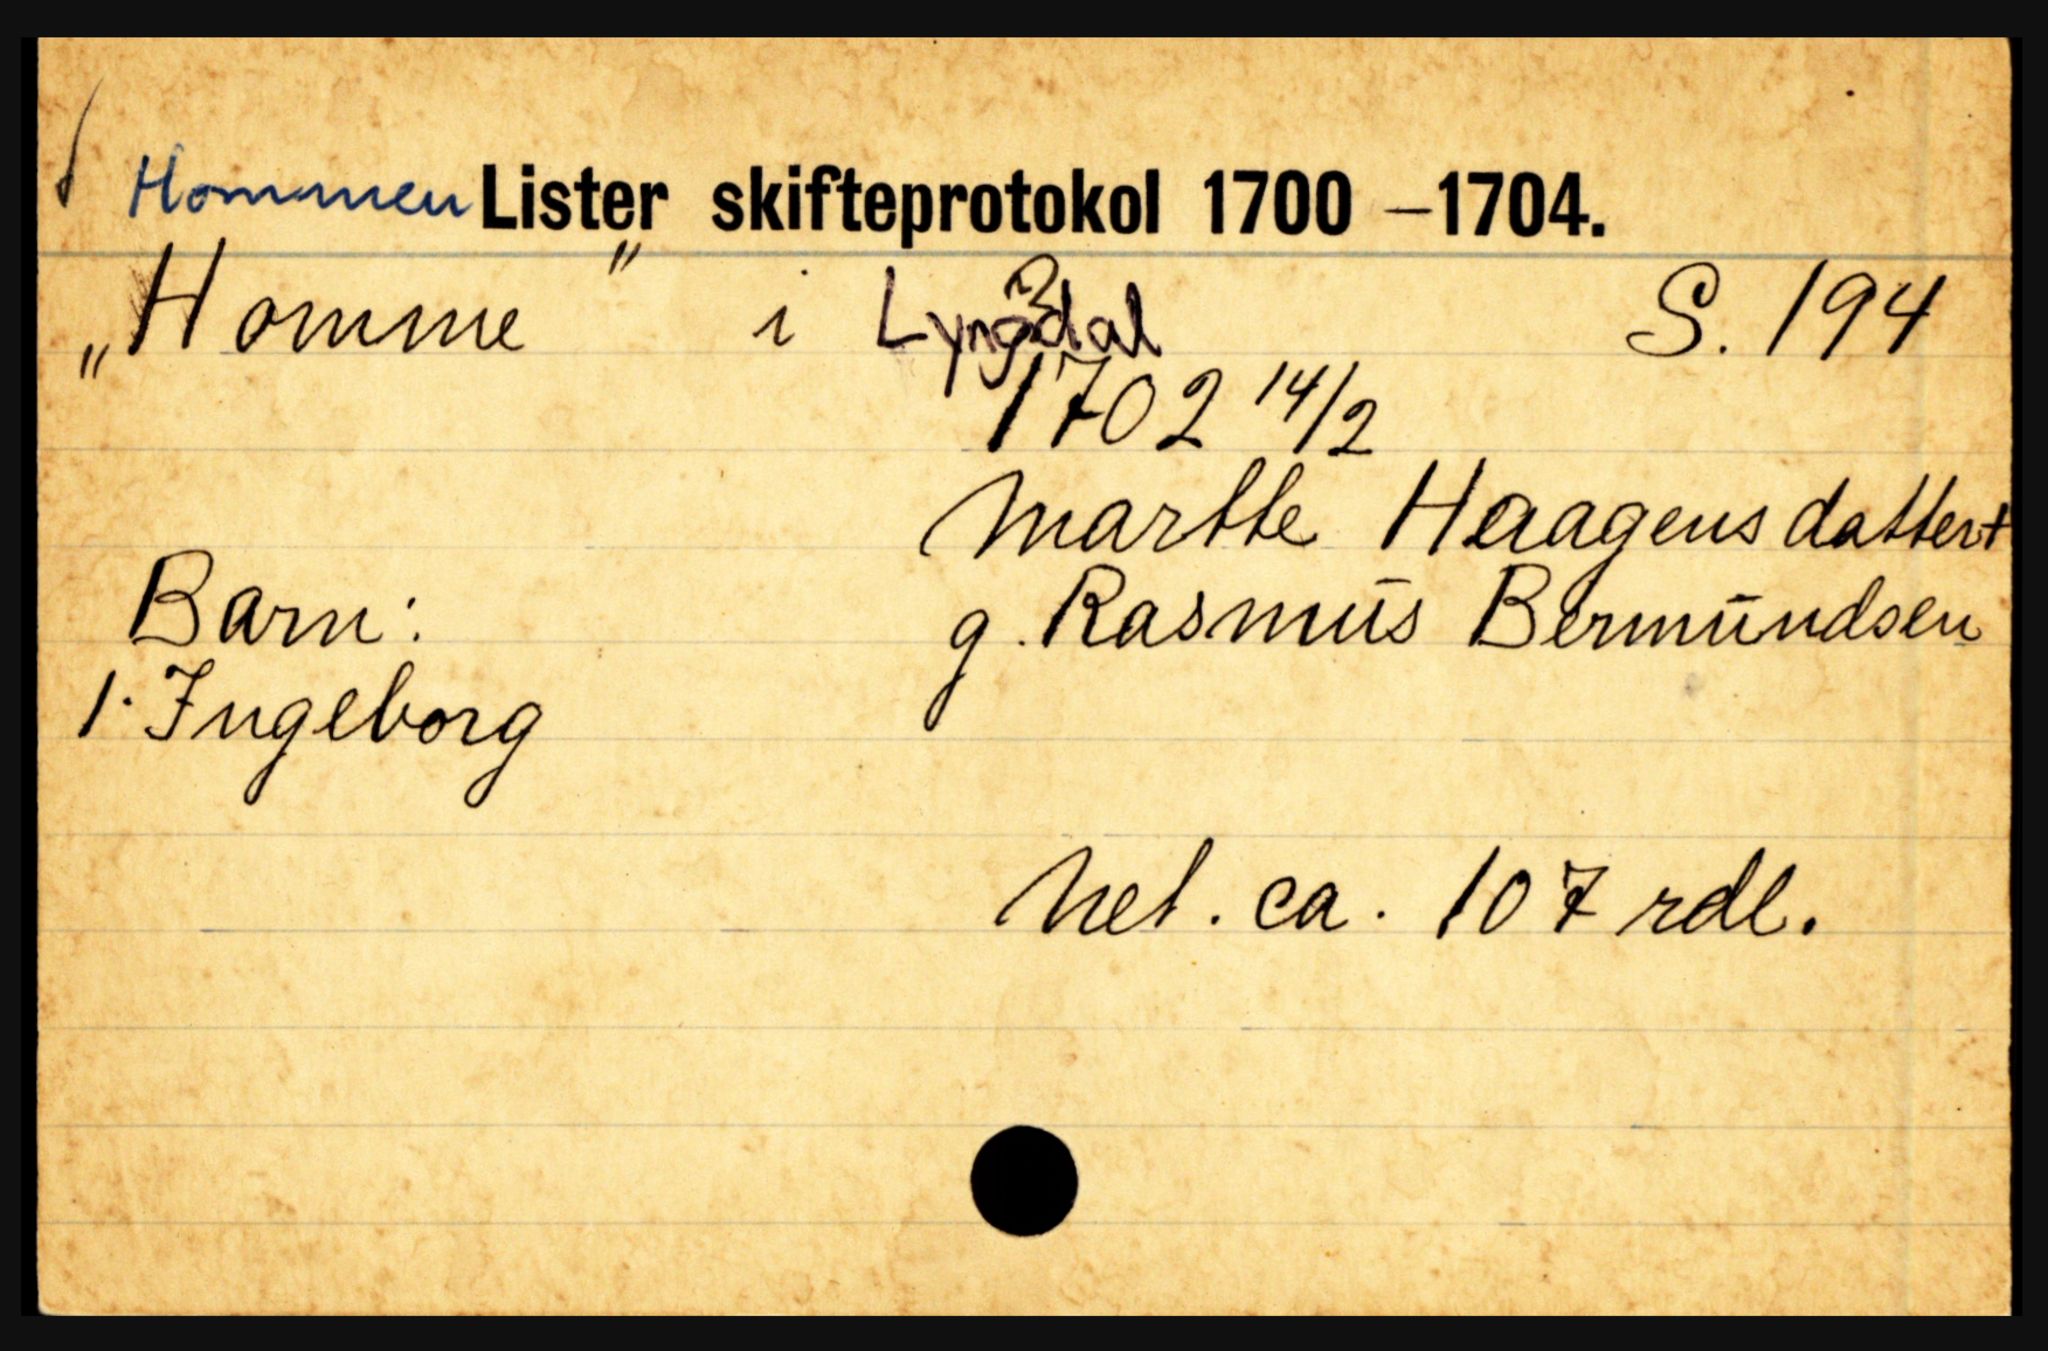 Hommen Lister skifteprotokol 1700 – 1704.
„Homme" i Lyngdal S. 194
1702 14/2
Marthe Haagensdatter +
Barn: g. Rasmus Bermundsen
1. Ingeborg
Net. ca. 107 rdl.